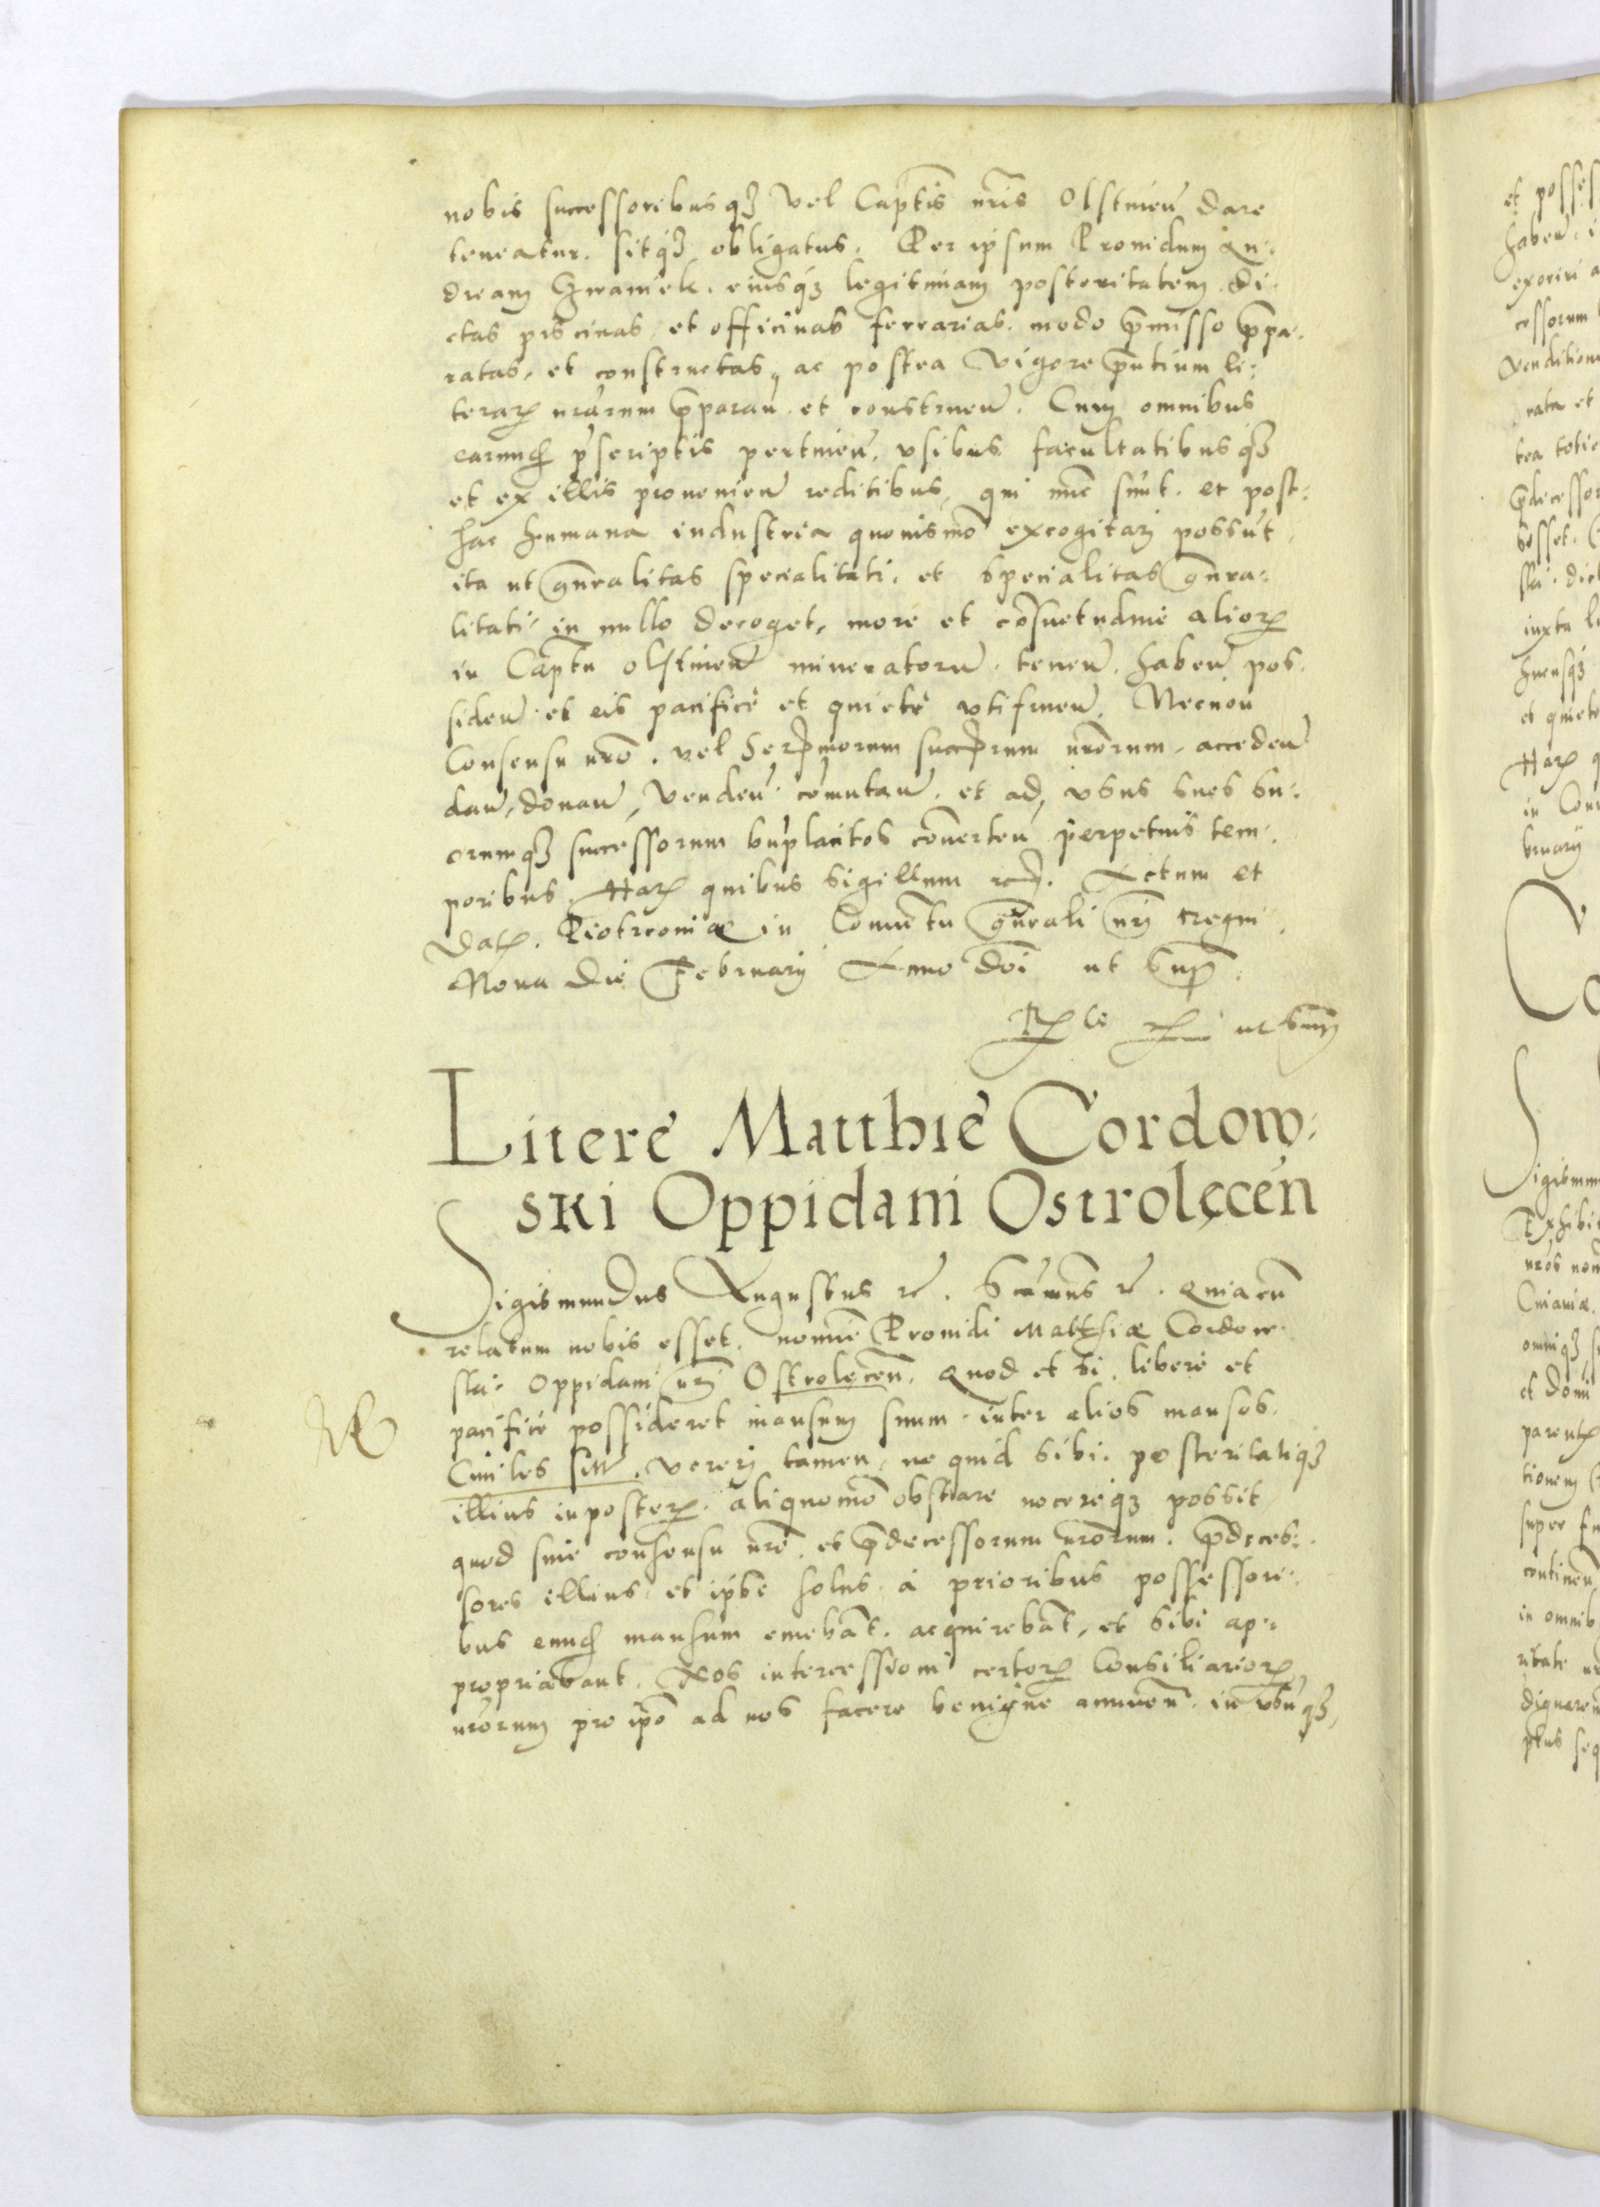 nobis successoribusq3 vel Captis nris Olstinen dare
teneatur. sitq3 obligatus. Per ipsum Providum An:
dream eiusq3 legitimam posteritatem. di:
ctas piscinas et officinas ferrarias. modo pmisso ppa:
ratas, et constructas, ac postea vigore pntium li:
terar nrarum pparan. et construen. Cum omnibus
earund pscriptis pertinen. usibus facultatibusq3
et ex illis provenien reditibus, qui nunc sunt. et post:
hac humana industria quovismo excogitari possut
ita ut gnralitas specialitati. et specialitas gnra:
litati in nullo deroget, more et cosuetudine alior
in Captu olstinen mineratoru. tenen. haben pos:
siden et eis pacifice et quiete utifruen. Necnon
Consensu nro. vel Serpmorum succprum nrorum. acceden
dan, donan, venden comutan. et ad usus suos su:
orumq3 successorum bnplacitos coverten perpetuis tem:
poribus. Har quibus sigillum Actum et
Dat. Piotrconiæ in Conuentu gnrali nri regni.
Nona die February Anno Doi ut supra.
ut supra
Litere Matthie Cordow:
ski Oppidani Ostrolęcen
Sigismundus Augustus re. S re. Quia cu
relatum nobis esset. nomine Providi Matthiæ Cordow:
ski oppidani nri Ostrolęcen. Quod et si libere et
pacifice possideret mansum suum inter alios mansos.
Ciuiles sitt. vereri tamen, ne quid sibi. posteritatiq3
illius in poster. aliquomo obstare nocereq3 possit
quod sine consensu nro. et pdecessorum nrorum. pdeces:
sores illius et ipse solus a prioribus possessori:
bus eund mansum emebat. acquirebat, et sibi ap:
propriabant. Nos intercessioni certor Consiliarior
nrorum pro ipo ad nos facere benigne annuen. in usuq3